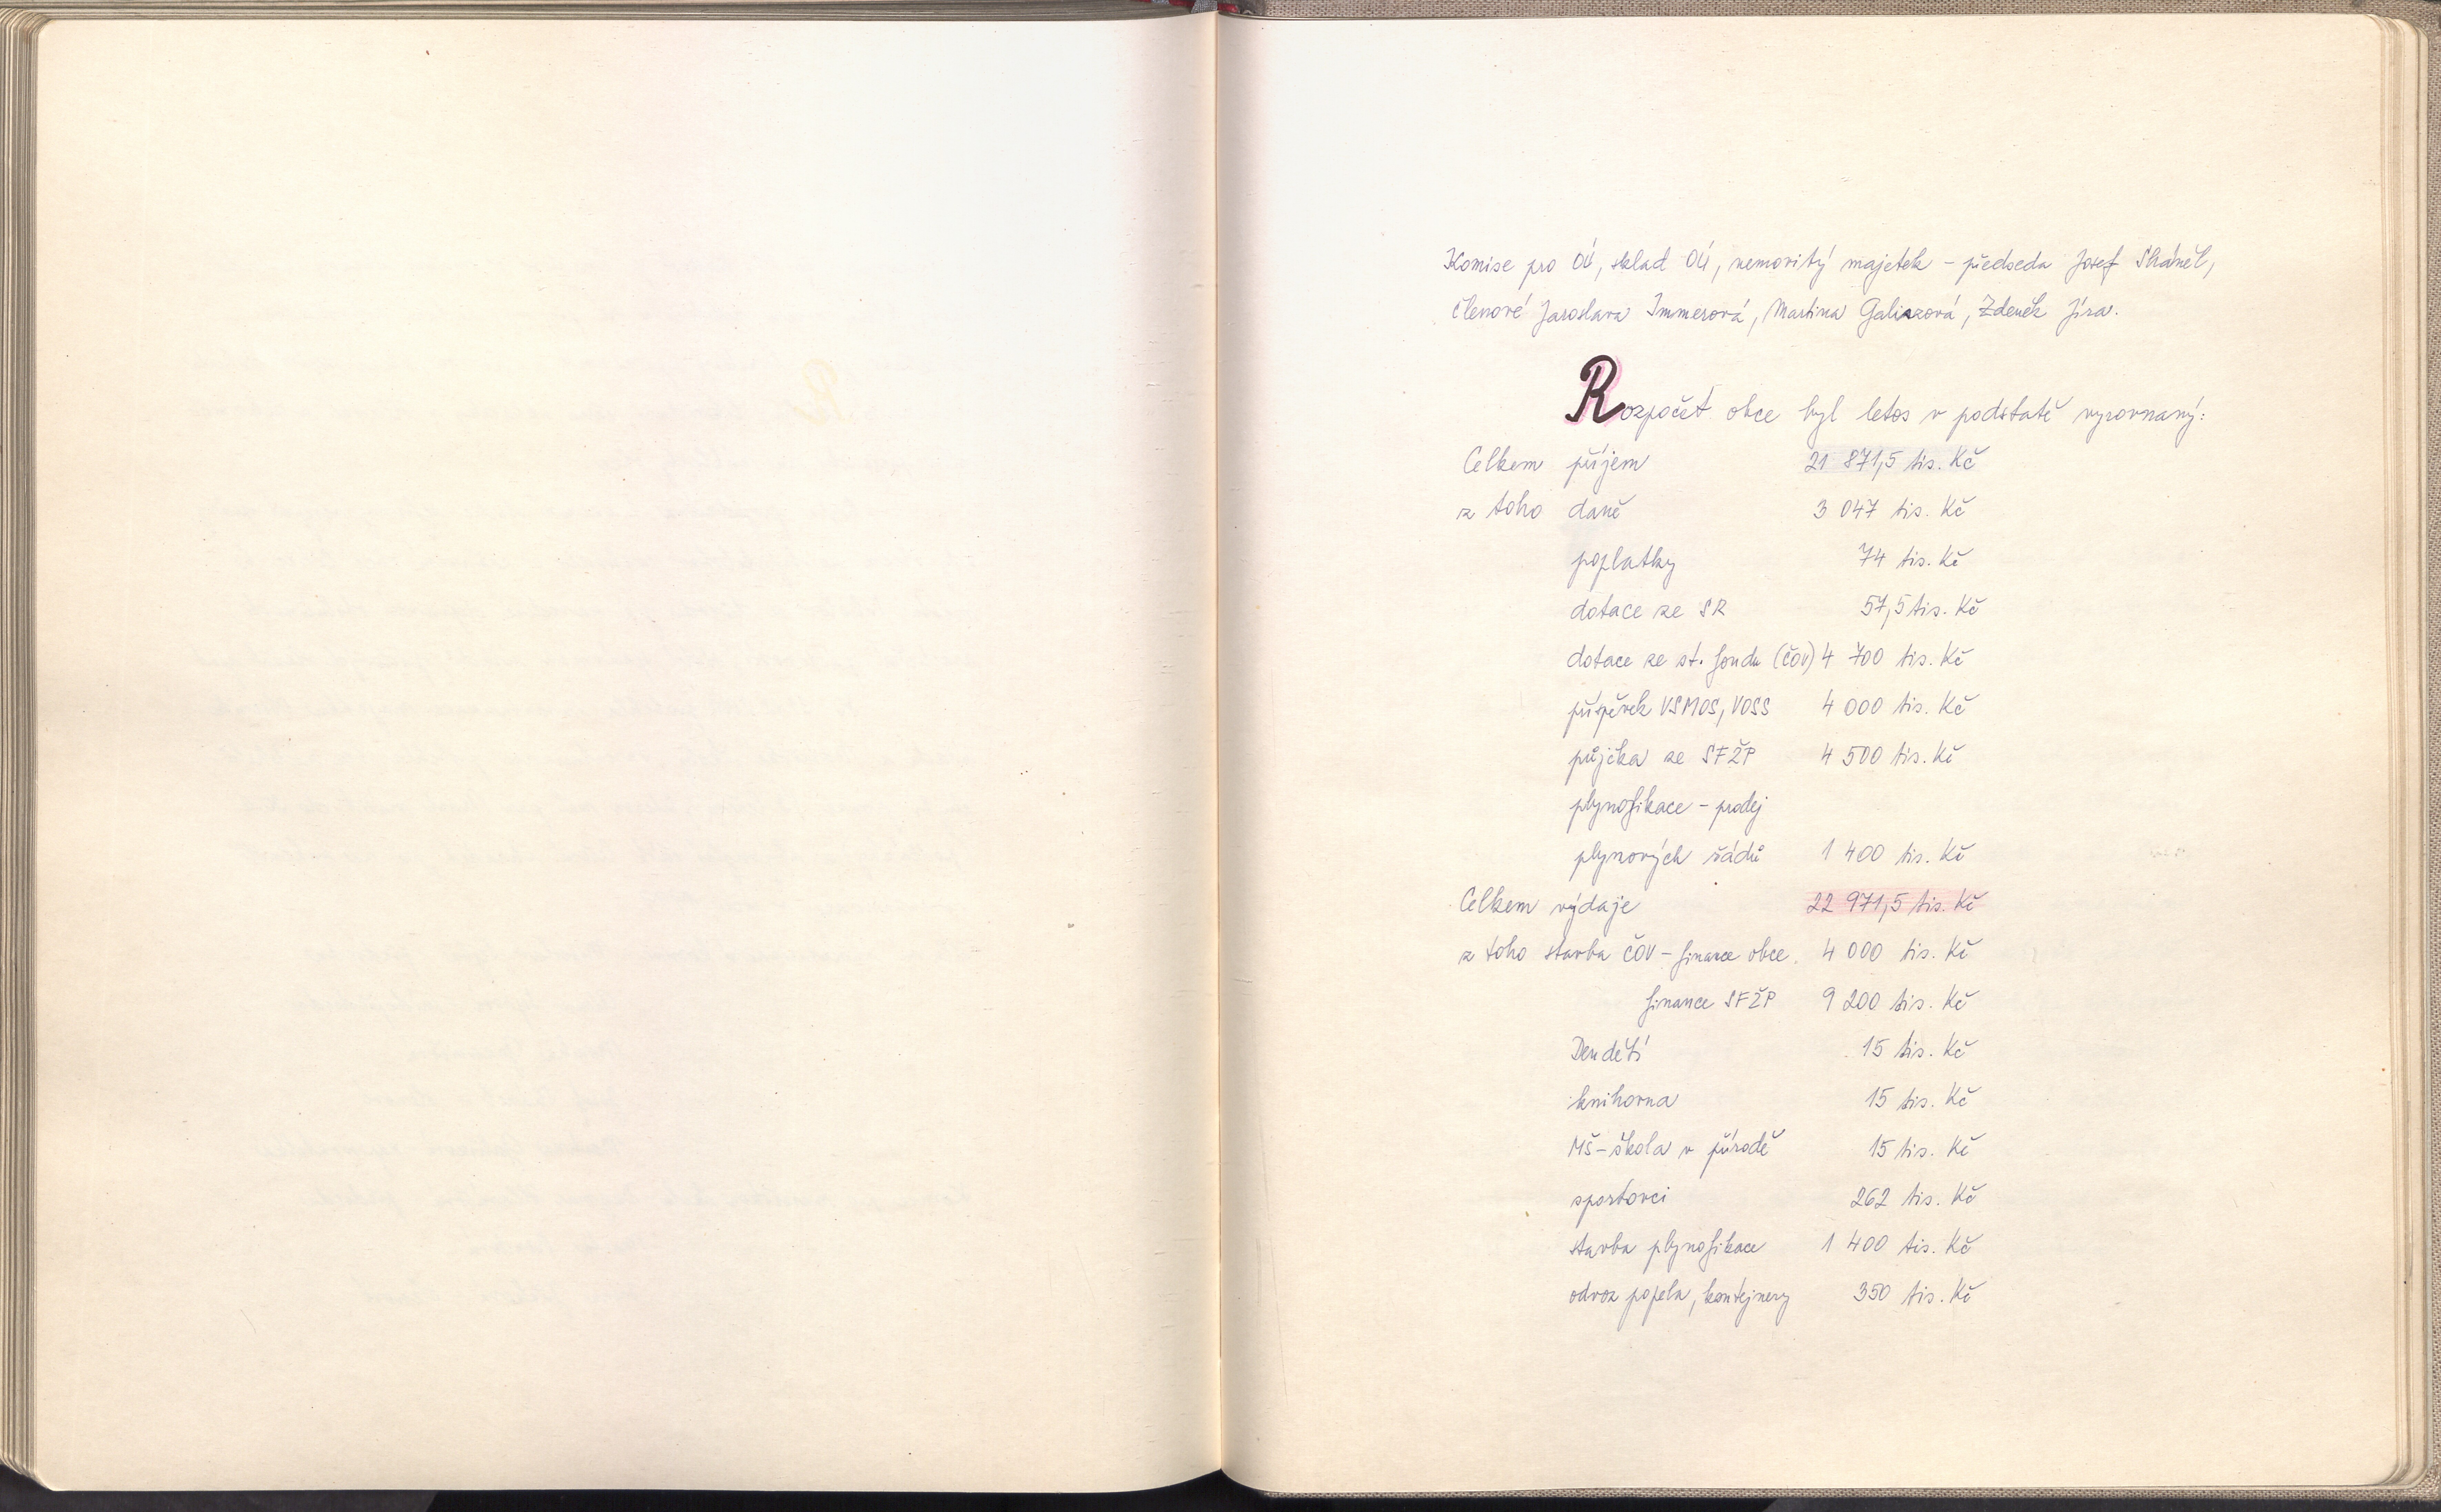 Komise pro OÚ, sklad OÚ, nemovitý majetek – předseda Josef Skáněl,
členové Jaroslava Immerová, Martina Galiazová, Zdeněk Jíra.
Rozpočet obce byl letos v podstatě vyrovnaný:
Celkem příjem 21 871,5 tis. Kč
z toho daně 3 047 tis. Kč
poplatky 74 tis. Kč
dotace ze SR 57,5 tis. Kč
dotace ze st. fondu (ČOV) 4 700 tis. Kč
příspěvek VSMOS, VOSS 4 000 tis. Kč
půjčka ze SFŽP 4 500 tis. Kč
plynofikace – prodej
plynových řádů 1 400 tis. Kč
Celkem výdaje 22 971,5 tis. Kč
z toho stavba ČOV – finance obce 4 000 tis. Kč
finance SFŽP 9 200 tis. Kč
Den dětí 15 tis. Kč
knihovna 15 tis. Kč
MŠ – škola v přírodě 15 tis. Kč
sportovci 262 tis. Kč
stavba plynofikace 1 400 tis. Kč
odvoz popela, kontejnery 350 tis. Kč